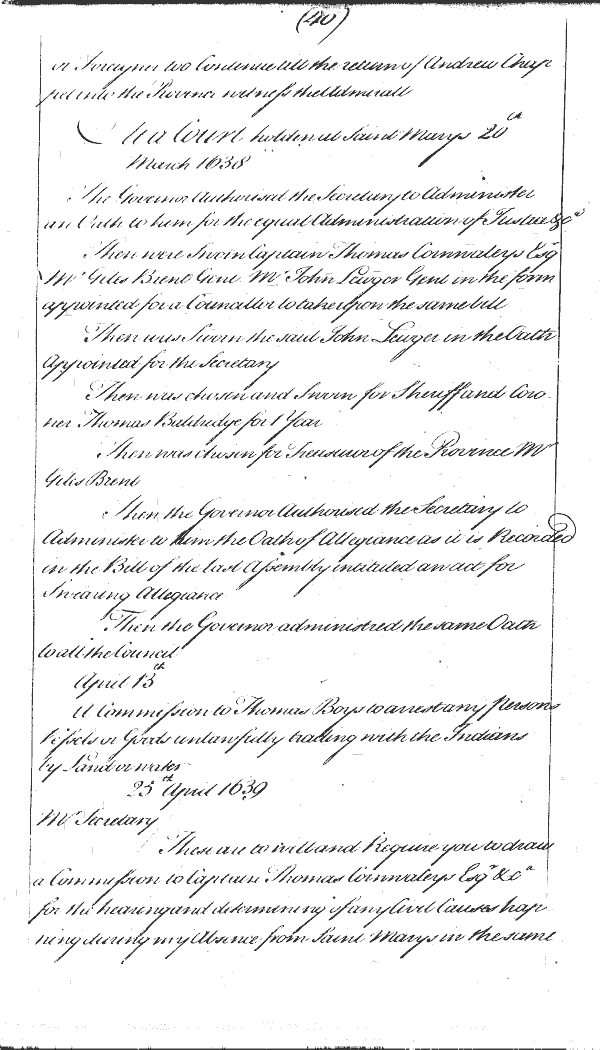 (40)
or Foreyner to Contenue till the return of Andrew Chap
pel into the Province witness the Admirall
At a Court holden at Saint Marys 20th
March 1638
The Governor Authorised the Secretary to Administer
an Oath to him for the equal Administration of Justice &ca
Then were Sworn Captain Thomas Cornwaleys Esqr
Mr Giles Brent Gent Mr John Lewger Gent in the form
appointed for a Councellor to take upon the same bill
Then was Sworn the said John Lewger in the Oath
Appointed for the Secretary
Then was chosen and Sworn for Sheriff and Coro
ner Thomas Baldridge for 1 Year
Then was chosen for Treasurer of the Province Mr
Giles Brent
Then the Governor Authorised the Secretary to
Administer to him the Oath of Allegiance as it is Recorded
in the Bill of the last Assembly intituled an act for
Swearing Allegiance
Then the Governor administred the same Oath
to all the Council
April 13th
A Commission to Thomas Boys to arrest any Persons
Vessels or Goods unlawfully trading with the Indians
by Land or water
25th April 1639
Mr Secretary
These are to will and Require you to draw
a Commission to Captain Thomas Cornwaleys Esqr &ca
for the hearing and determining of any Civil Causes hap
ning during my Absence from Saint Marys in the same